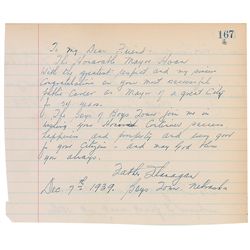 167
To my Dear Friend -
The Honorable Mayor Hoan
With the greatest respect and my sincere
Congratulations on your most successful
public Career as Mayor of a great City
for 24 years.
The Boys of Boys Town join me in
wishing you Continued success
happiness and prosperity and every good
for your Citizens - and may God bless
you always.
Father Flanagan
Dec. 7th 1939. Boys Town, Nebraska